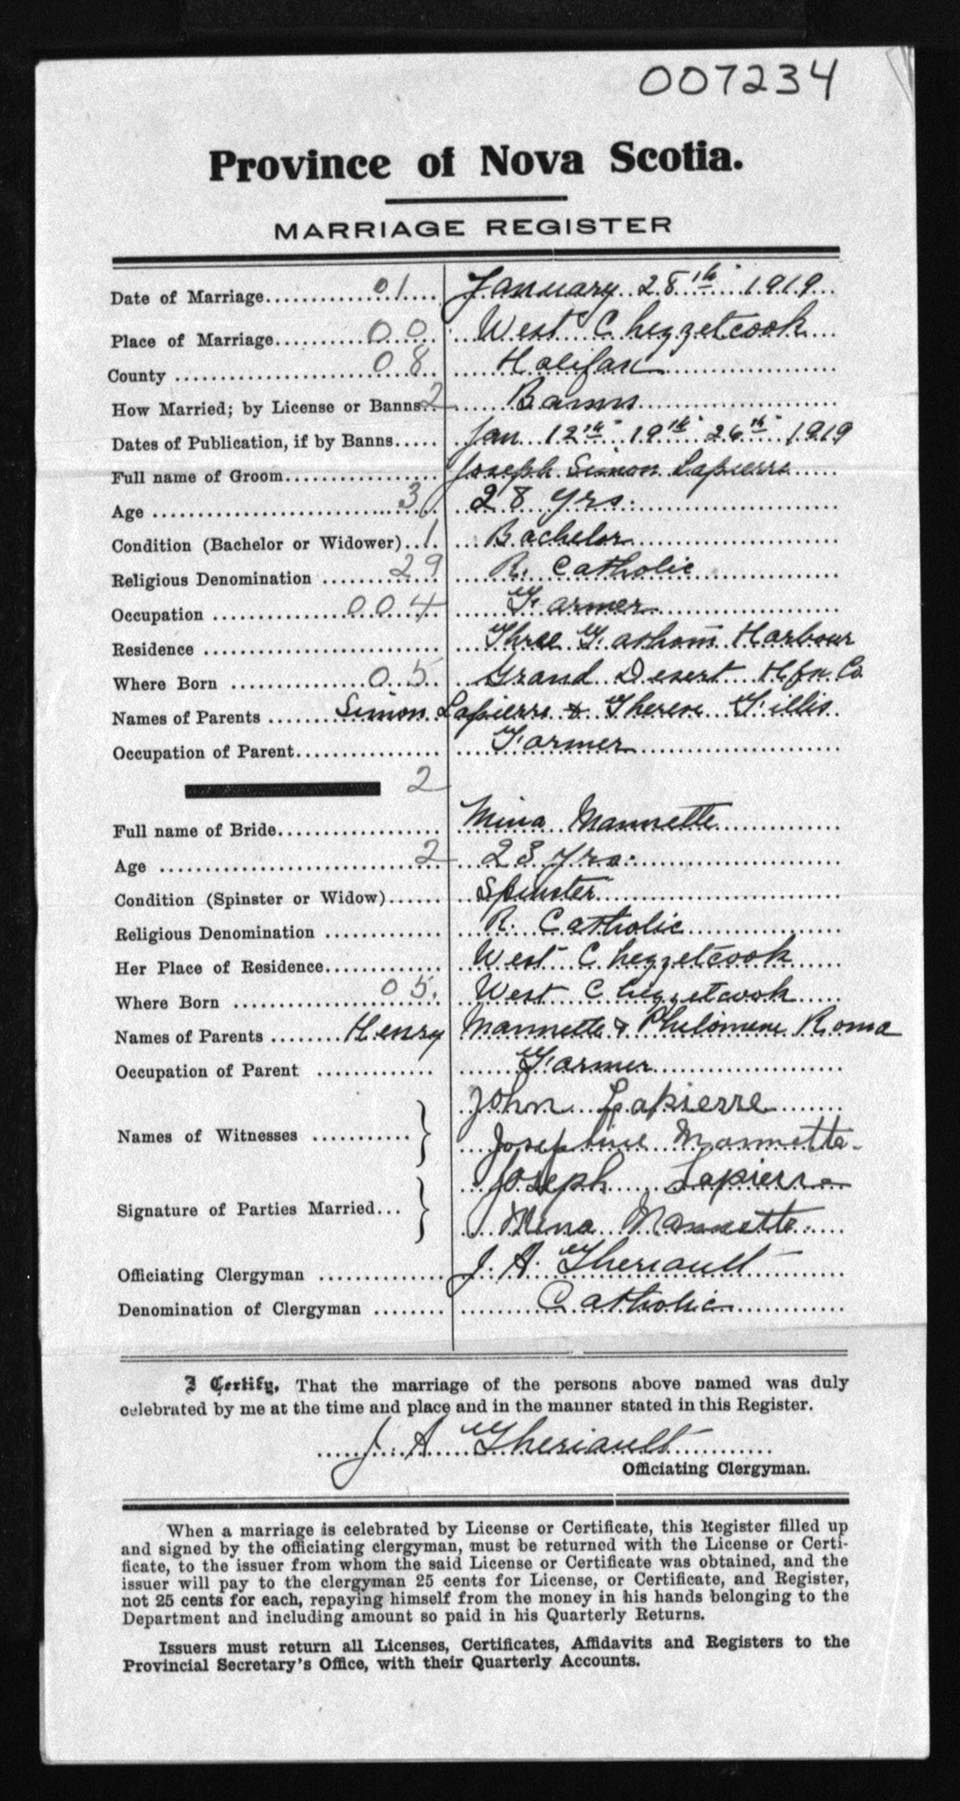 007234
Province of Nova Scotia.
MARRIAGE REGISTER
Date of Marriage 01 January 28th 1919
Place of Marriage 00 West Chezzetcook
County 08 Halifax
How Married; by License or Banns 2 Banns
Dates of Publication, if by Banns Jan 12th 19th 26th 1919
Full name of Groom Joseph Simon Lapierre
Age 3 28 yrs.
Condition (Bachelor or Widower) 1 Bachelor
Religious Denomination 29 R. Catholic
Occupation 004 Farmer
Residence Three Fathom Harbour
Where Born 05 Grand Desert Hfx Co.
Names of Parents Simon Lapierre & Therese Fillis
Occupation of Parent Farmer
2
Full name of Bride Mina Mannette
Age 2 23 yrs.
Condition (Spinster or Widow) Spinster
Religious Denomination R. Catholic
Her Place of Residence West Chezzetcook
Where Born 05. West Chezzetcook
Names of Parents Henry Mannette & Philomene Roma
Occupation of Parent Farmer
John Lapierre
Names of Witnesses Josephine Mannette
Joseph Lapierre
Signature of Parties Married Mina Mannette
Officiating Clergyman J. A. Theriault
Denomination of Clergyman Catholic
I Certify, That the marriage of the persons above named was duly
celebrated by me at the time and place and in the manner stated in this Register.
J. A Theriault
Officiating Clergyman.
When a marriage is celebrated by License or Certificate, this Register filled up
and signed by the officiating clergyman, must be returned with the License or Certi-
ficate, to the issuer from whom the said License or Certificate was obtained, and the
issuer will pay to the clergyman 25 cents for License, or Certificate, and Register,
not 25 cents for each, repaying himself from the money in his hands belonging to the
Department and including amount so paid in his Quarterly Returns.
Issuers must return all Licenses, Certificates, Affidavits and Registers to the
Provincial Secretary's Office, with their Quarterly Accounts.